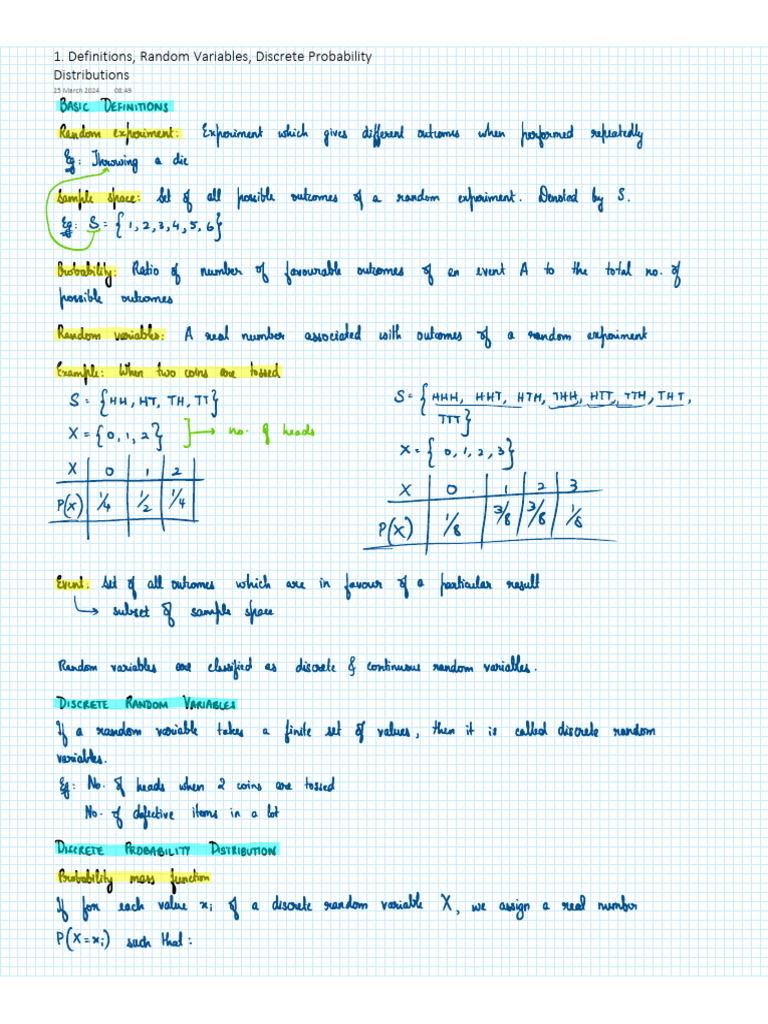 1. Definitions, Random Variables, Discrete Probability
Distributions
25 March 2024 08:49
BASIC DEFINITIONS
Random experiment: Experiment which gives different outcomes when performed repeatedly
Eg: Throwing a die
Sample space: Set of all possible outcomes of a random experiment. Denoted by S.
Eg: S = {1, 2, 3, 4, 5, 6}
Probability: Ratio of number of favourable outcomes of an event A to the total no. of
possible outcomes
Random variables: A real number associated with outcomes of a random experiment
Example: When two coins are tossed
S = {HH, HT, TH, TT}
X = {0, 1, 2} → no. of heads
X 0 1 2
P(X) 1/4 1/2 1/4
S = {HHH, HHT, HTH, THH, HTT, TTH, THT,
TTT}
X = {0, 1, 2, 3}
X 0 1 2 3
P(X) 1/8 3/8 3/8 1/8
Event: Set of all outcomes which are in favour of a particular result
↳ subset of sample space
Random variables are classified as discrete & continuous random variables.
DISCRETE RANDOM VARIABLES
If a random variable takes a finite set of values, then it is called discrete random
variables.
Eg: No. of heads when 2 coins are tossed
No. of defective items in a lot
DISCRETE PROBABILITY DISTRIBUTION
Probability mass function
If for each value xᵢ of a discrete random variable X, we assign a real number
P(X = xᵢ) such that: